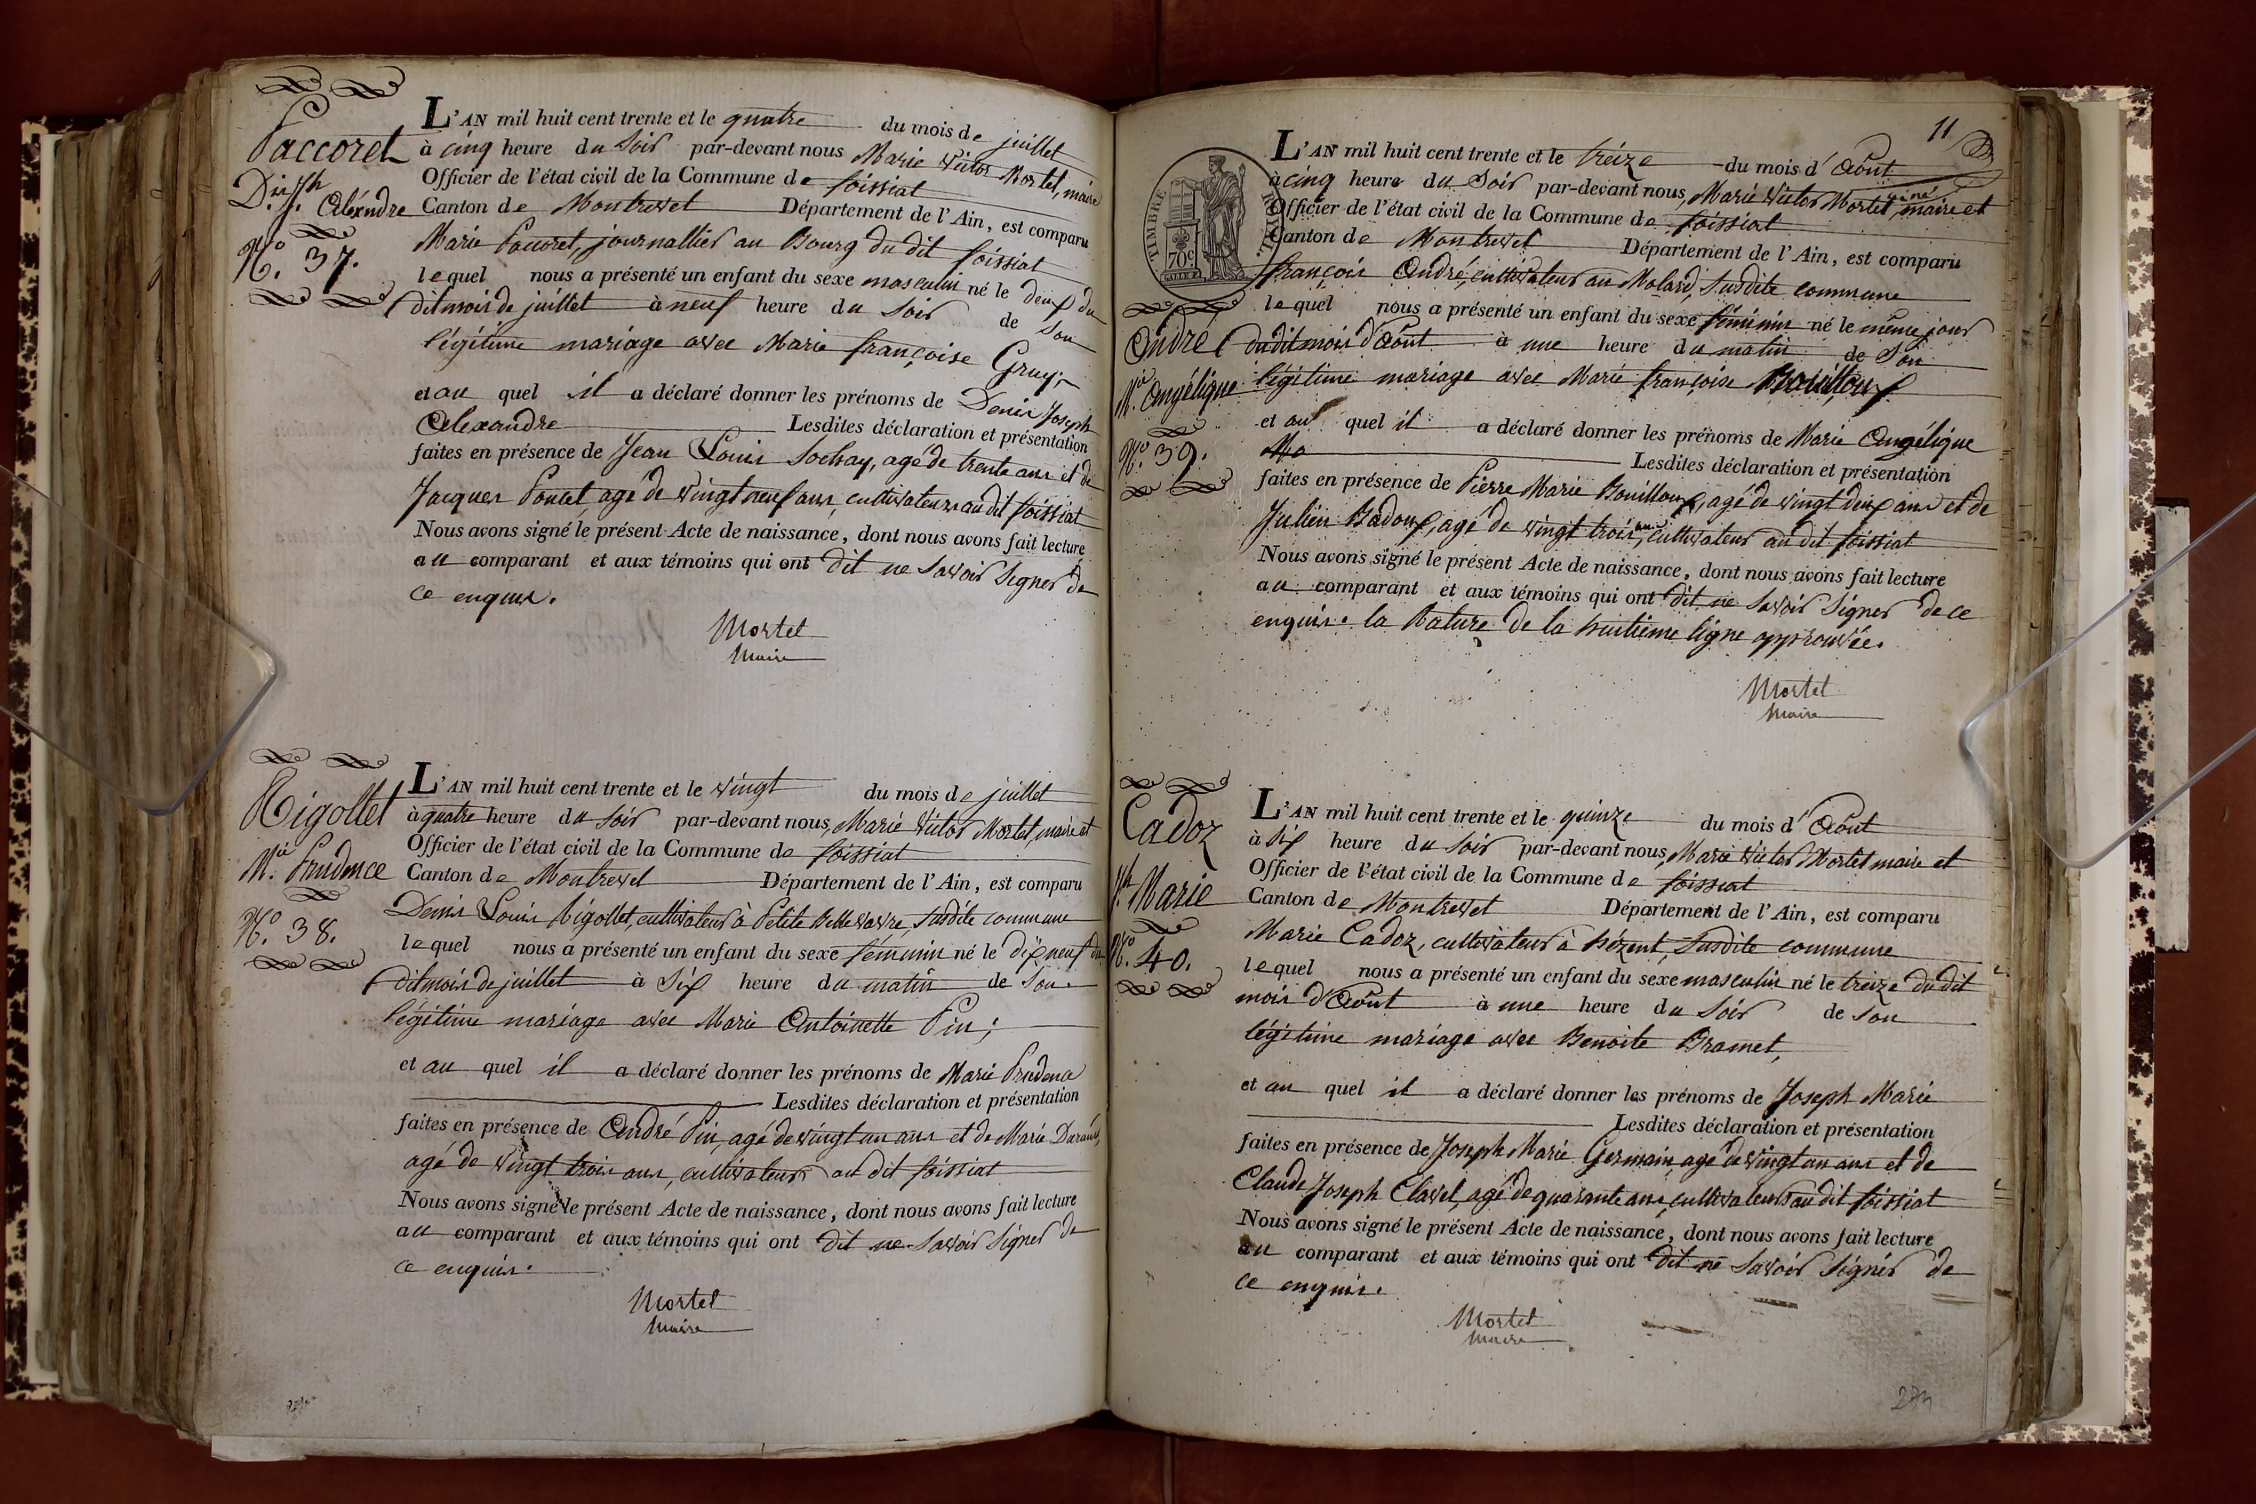 Paccoret
D.is J.ph Aléxndre
N.o 37.
L'AN mil huit cent trente et le quatre du mois de juillet
à cinq heure du soir par-devant nous Marie Victor Mortel, maire
Officier de l'état civil de la Commune de foissiat
Canton de Montrevel Département de l'Ain, est comparu
Marie Paccoret, journallier au Bourg du dit foissiat
lequel nous a présenté un enfant du sexe masculin né le deux du
dit mois de juillet à neuf heure du soir de son
légitime mariage avec Marie françoise Gruy;
et au quel il a déclaré donner les prénoms de Denis Joseph
Alexandre Lesdites déclaration et présentation
faites en présence de Jean Louis Sochay, agé de trente ans et de
Jacques Poncet, agé de vingt neuf ans, cultivateurs au dit foissiat
Nous avons signé le présent Acte de naissance, dont nous avons fait lecture
au comparant et aux témoins qui ont dit ne savoir signer de
ce enquis.
Mortel
Maire
Rigollet
M.ie Prudence
N.o 38.
L'AN mil huit cent trente et le vingt du mois de juillet
à quatre heure du soir par-devant nous, Marie Victor Mortel, maire et
Officier de l'état civil de la Commune de foissiat
Canton de Montrevel Département de l'Ain, est comparu
Denis Louis Rigollet, cultivateur à Petite Bellevavre, susdite commune
lequel nous a présenté un enfant du sexe féminin né le dix neuf du
dit mois de juillet à six heure du matin de son
légitime mariage avec Marie Antoinette Pin;
et au quel il a déclaré donner les prénoms de Marie Prudence
Lesdites déclaration et présentation
faites en présence de André Pin, agé de vingt un ans et de Marie
agé de vingt trois ans, cultivateurs au dit foissiat
Nous avons signé le présent Acte de naissance, dont nous avons fait lecture
au comparant et aux témoins qui ont dit ne savoir signer de
ce enquis.
Mortel
Maire
11
TIMBRE ROYAL
70c
André
M.ie Angélique
N.o 39.
L'AN mil huit cent trente et le treize du mois d'Août
à cinq heure du soir par-devant nous, Marie Victor Mortel, maire et
Officier de l'état civil de la Commune de foissiat
Canton de Montrevel Département de l'Ain, est comparu
françois André, cultivateur au Molard, susdite commune
lequel nous a présenté un enfant du sexe féminin né le même jour
du dit mois d'Août à une heure du matin de son
légitime mariage avec Marie françoise Bouilloux
et au quel il a déclaré donner les prénoms de Marie Angélique
Ma Lesdites déclaration et présentation
faites en présence de Pierre Marie Bouilloux, agé de vingt deux ans et de
Julien Badoux, agé de vingt trois ans, cultivateur au dit foissiat
Nous avons signé le présent Acte de naissance, dont nous avons fait lecture
au comparant et aux témoins qui ont dit ne savoir signer de ce
enquis. la Rature de la huitième ligne approuvée.
Mortel
Maire
Cadoz
J.ph Marie
N.o 40.
L'AN mil huit cent trente et le quinze du mois d'Août
à six heure du soir par-devant nous, Marie Victor Mortel maire et
Officier de l'état civil de la Commune de foissiat
Canton de Montrevel Département de l'Ain, est comparu
Marie Cadoz, cultivateur à hézent, susdite commune
lequel nous a présenté un enfant du sexe masculin né le treize du dit
mois d'Août à une heure du soir de son
légitime mariage avec Benoite Bramet,
et au quel il a déclaré donner les prénoms de Joseph Marie
Lesdites déclaration et présentation
faites en présence de Joseph Marie Germain, agé de vingt un ans et de
Claude Joseph Clavel, agé de quarante ans, cultivateurs au dit foissiat
Nous avons signé le présent Acte de naissance, dont nous avons fait lecture
au comparant et aux témoins qui ont dit ne savoir signer de
ce enquis.
Mortel
Maire